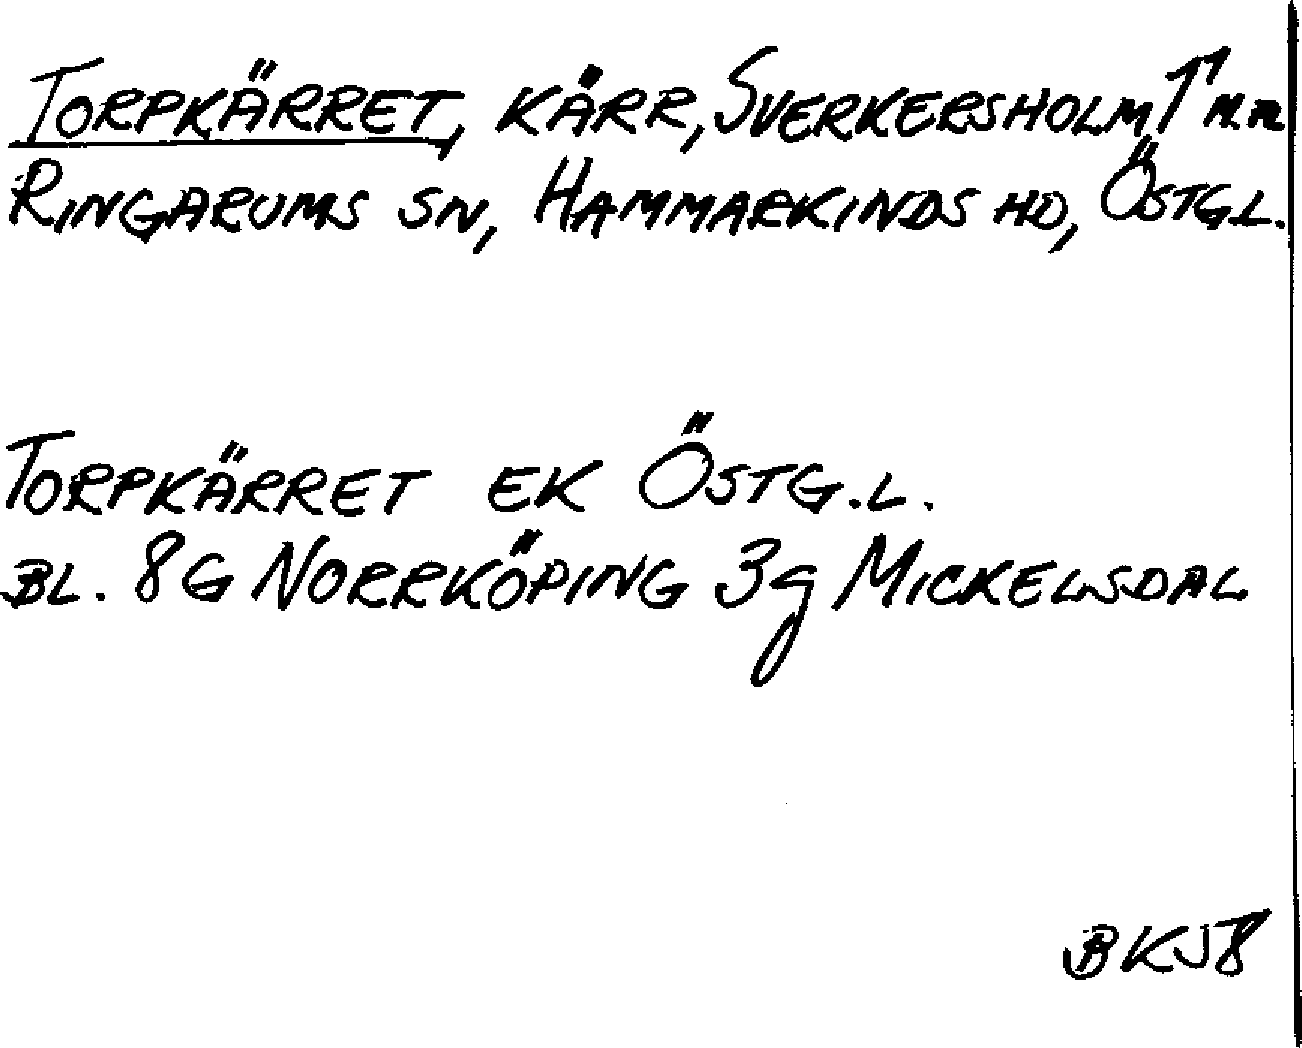 TORPKÄRRET, KÄRR, SVERKERSHOLM 1¹ M.M.
RINGARUMS SN, HAMMARKINDS HD, ÖSTG.L.
TORPKÄRRET EK ÖSTG.L.
BL. 8G NORRKÖPING 3g MICKELSDAL